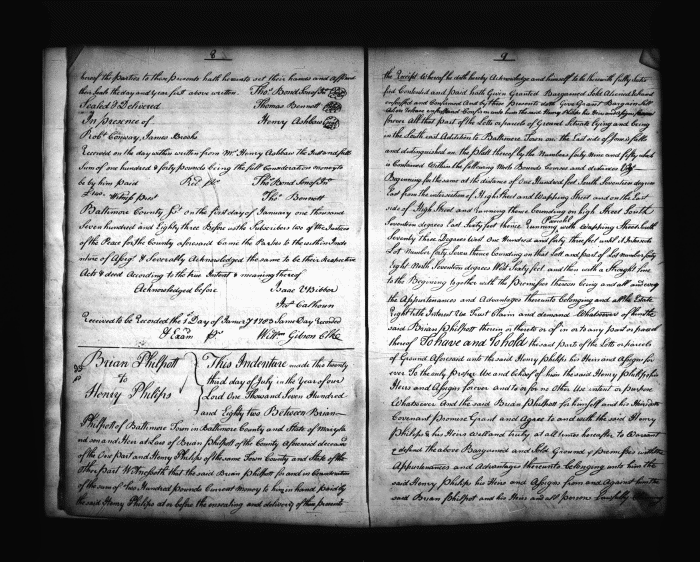 8
hereof the parties to these presents hath hereunto set their hands and affixed
their seals the day and year first above written. Thos. Bond Son of Jno
Sealed & Delivered Thomas Bennett
In presence of Henry Ashbaw
Robt. Conway, James Brooks
Received on the day within written from Mr Henry Ashbaw the Just and full
Sum of one hundred & forty pounds being the full Consideration money to
be by him paid Recd. pr. Thos. Bond Son of Jno
Thos. Bennett
Baltimore County st. on the first day of January one thousand
Seven hundred and Eighty three Before us the Subscribers two of the Justices
of the Peace for the County aforesaid Came the Parties to the within Inden
ture of & Severally Acknowledged the same to be their respective
Acts & deed According to the true Intent & meaning thereof
Acknowledged before Isaac VBibber
Jno. Calhoun
Received to be Recorded the Day of 1783 Same Day Recorded
& Exam pr. Willm Gibson Clk
Brian Philpott
to
Henry Philips
This Indenture made this twenty
third day of July in the Year of our
Lord One Thousand Seven Hundred
and Eighty two Between Brian
Philpott of Baltimore Town in Baltimore County and State of Maryla
nd son and Heir at Law of Brian Philpott of the County Aforesaid deceased
of the One Part and Henry Philips of the same Town County and State of the
other Part Witnesseth that the said Brian Philpott for and in Consideration
of the sum of two Hundred pounds Current Money to him in hand paid by
the said Henry Philips at or before the ensealing and delivery of these presents
9
the Receipt whereof he doth hereby Acknowledge and himself to be therewith fully Satis
fied Contented and paid hath Given Granted Bargained Sold Aliened
enfeoffed and Confirmed And by these presents doth Give Grant Bargain Sell
Alien enfeoff and Confirm unto him the said Henry Philips his Heirs and Assigns
forever All that part of the Lotts or parcels of Ground Situate lying and being
in the Addition to Baltimore Town on the East side of Jones's falls
and distinguished on the plat thereof by the Numbers forty Nine and fifty which
is Contained Within the following Metes Bounds Courses and distances Viz
Beginning for the same at the distance of One Hundred feet South Seventeen degrees
East from the intersection of High Street and Wapping Street and on the East
side of High Street and running thence bounding on High Street South
Seventeen degrees East Sixty feet thence Running Parallel with Wapping Street North
Seventy Three Degrees West One Hundred and forty three feet until it Intersects
Lot Number forty Seven thence Bounding on that Lott and part of Lot Number forty
Eight North Seventeen degrees West Sixty feet and then with a Straight Line
to the Beginning together with the premises thereon being and all and every
the Appurtenances and Advantages thereunto belonging and all the Estate
Right Title Interest Use Trust Claim and demand Whatsoever of him the
said Brian Philpott therein or thereto or of in or to any part or parcel
thereof To have and to hold the said parts of the Lotts or parcels
of Ground Aforesaid unto the said Henry Philips his Heirs and Assigns for
ever To the only proper Use and behoof of him the said Henry Philips his
Heirs and Assigns forever and to or for no other Use intent or purpose
Whatsoever And the said Brian Philpott for himself and his Heirs doth
Covenant Promise Grant and Agree to and with the said Henry
Philips & his Heirs Well and truly at all times hereafter to Warrant
& defend the above Bargained and Sold Ground & premises with the
Appurtenances and Advantages thereunto belonging unto him the
said Henry Philips his Heirs and Assigns from and Against him the
said Brian Philpott and his Heirs and All persons Lawfully